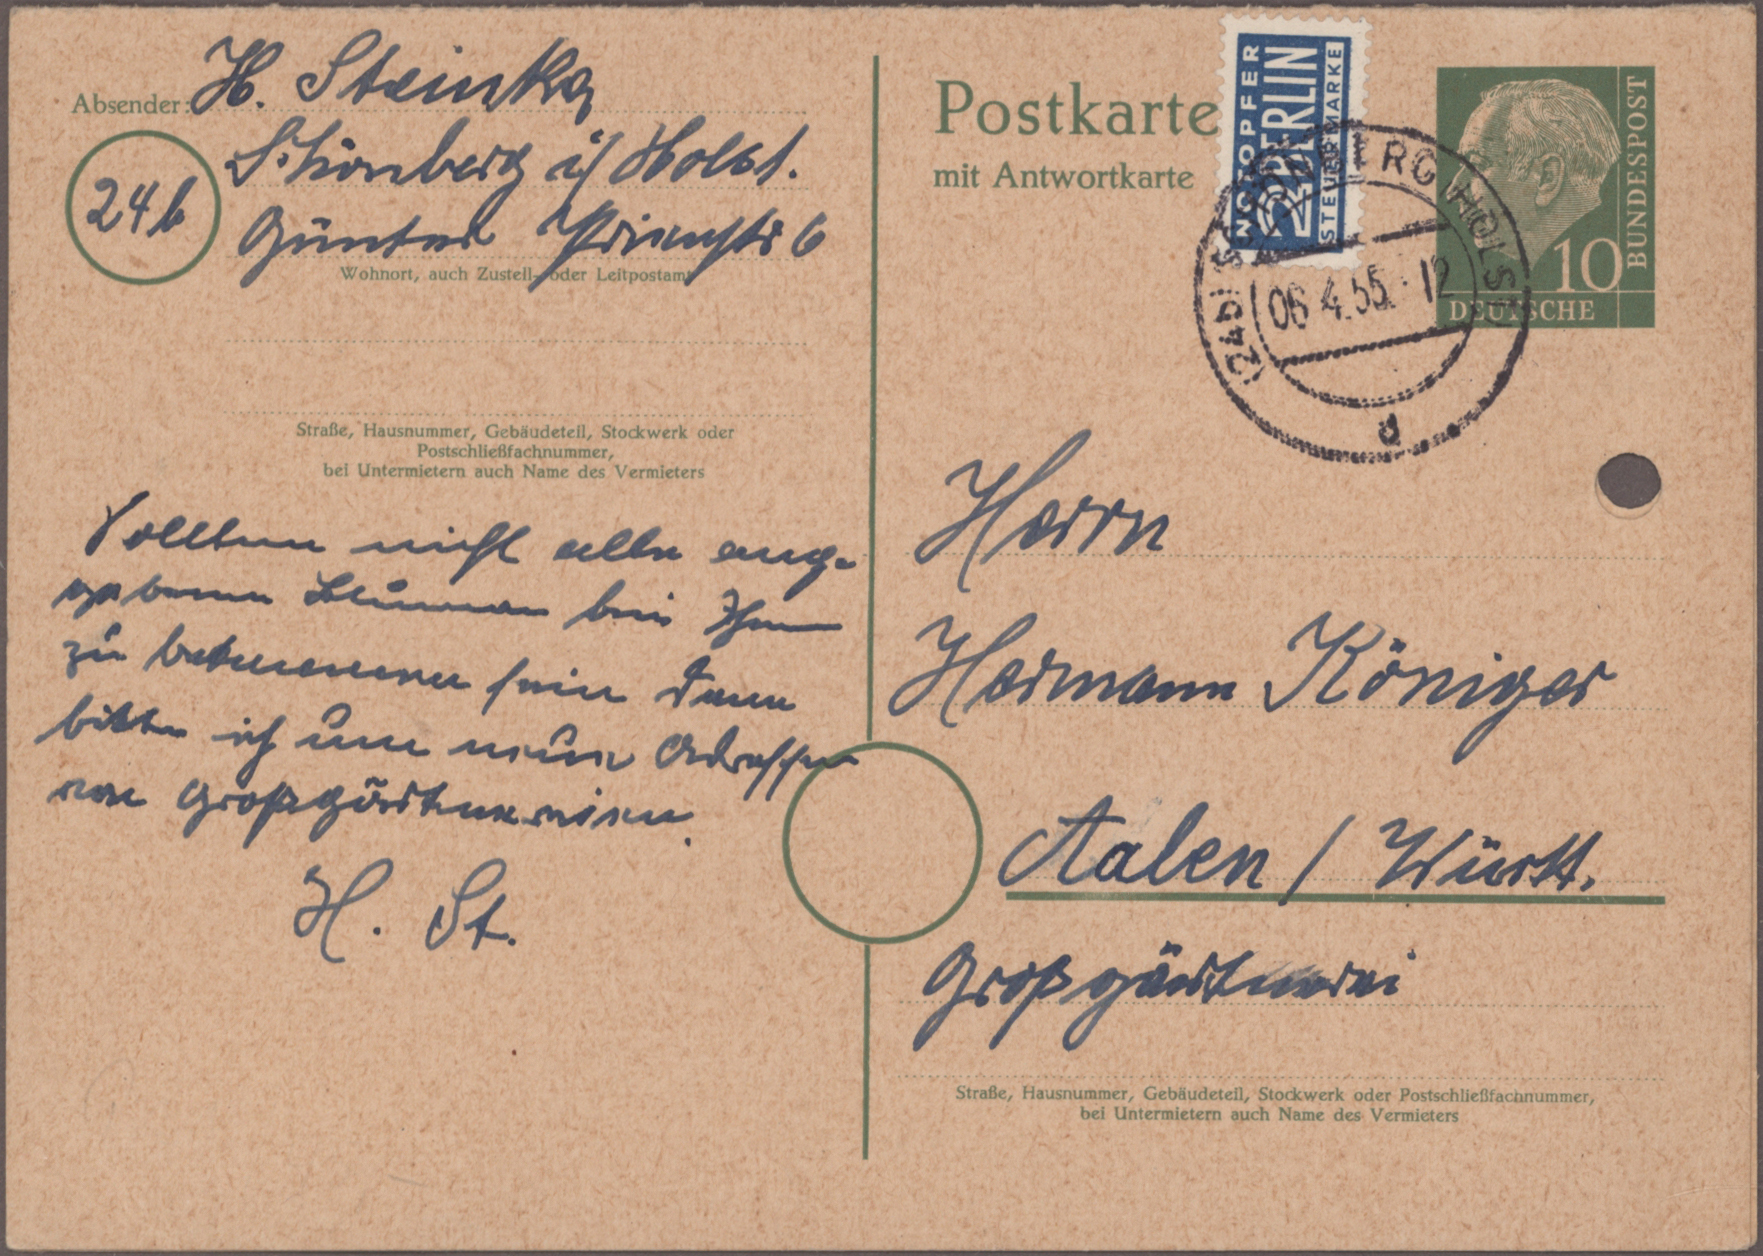 Absender: H. Steinke
Schönberg i/ Holst.
24b
Günter Prienstr 6
Wohnort, auch Zustell- oder Leitpostamt
Straße, Hausnummer, Gebäudeteil, Stockwerk oder
Postschließfachnummer,
bei Untermietern auch Name des Vermieters
Sollten nicht alle ange-
gebenen Blumen bei Ihnen
zu bekommen sein dann
bitte ich um neue Adressen
von Großgärtnereien.
H. St.
Postkarte
mit Antwortkarte
NOTOPFER
2 BERLIN
STEUERMARKE
10
DEUTSCHE
BUNDESPOST
(24b) SCHÖNBERG (HOLST)
06.4.55.-12
d
Herrn
Hermann Königer
Aalen / Württ.
Großgärtnerei
Straße, Hausnummer, Gebäudeteil, Stockwerk oder Postschließfachnummer,
bei Untermietern auch Name des Vermieters